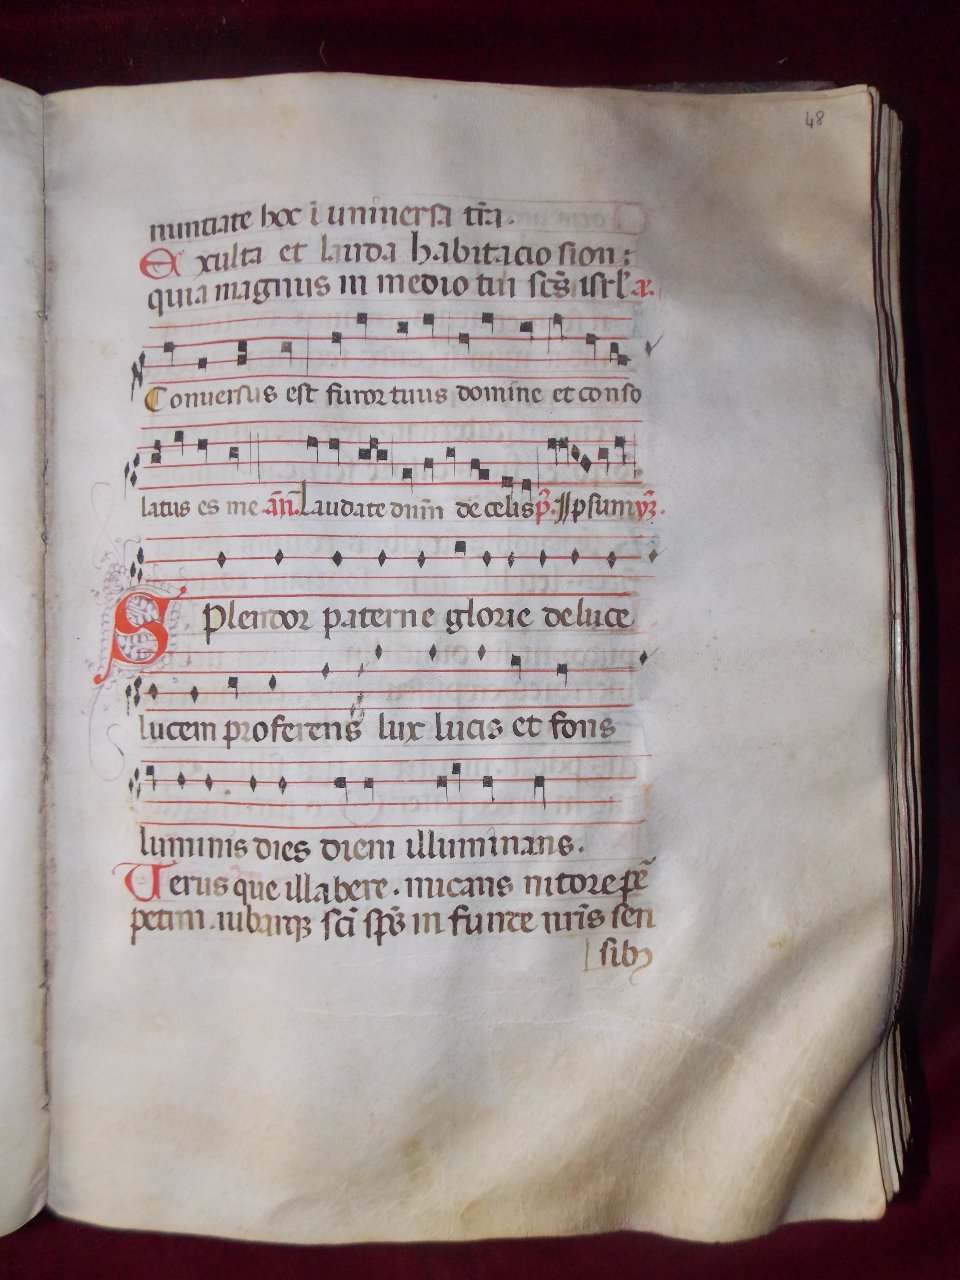 48
nuntiate hoc ī universa tr̄a.
Exulta et lauda habitacio sion:
quia magnus in medio tui sc̄s isrl̄ a.
Conversus est furor tuus domine et conso
latus es me an̄. Laudate dnm̄ de celis p̄. Ipsum ym̄.
Splendor paterne glorie de luce
lucem proferens lux lucis et fons
luminis dies diem illuminans.
Verus que illabere. micans nitore pē
petim. iubarqꝫ sc̄i sp̄s in funde nr̄is sen
sibꝫ